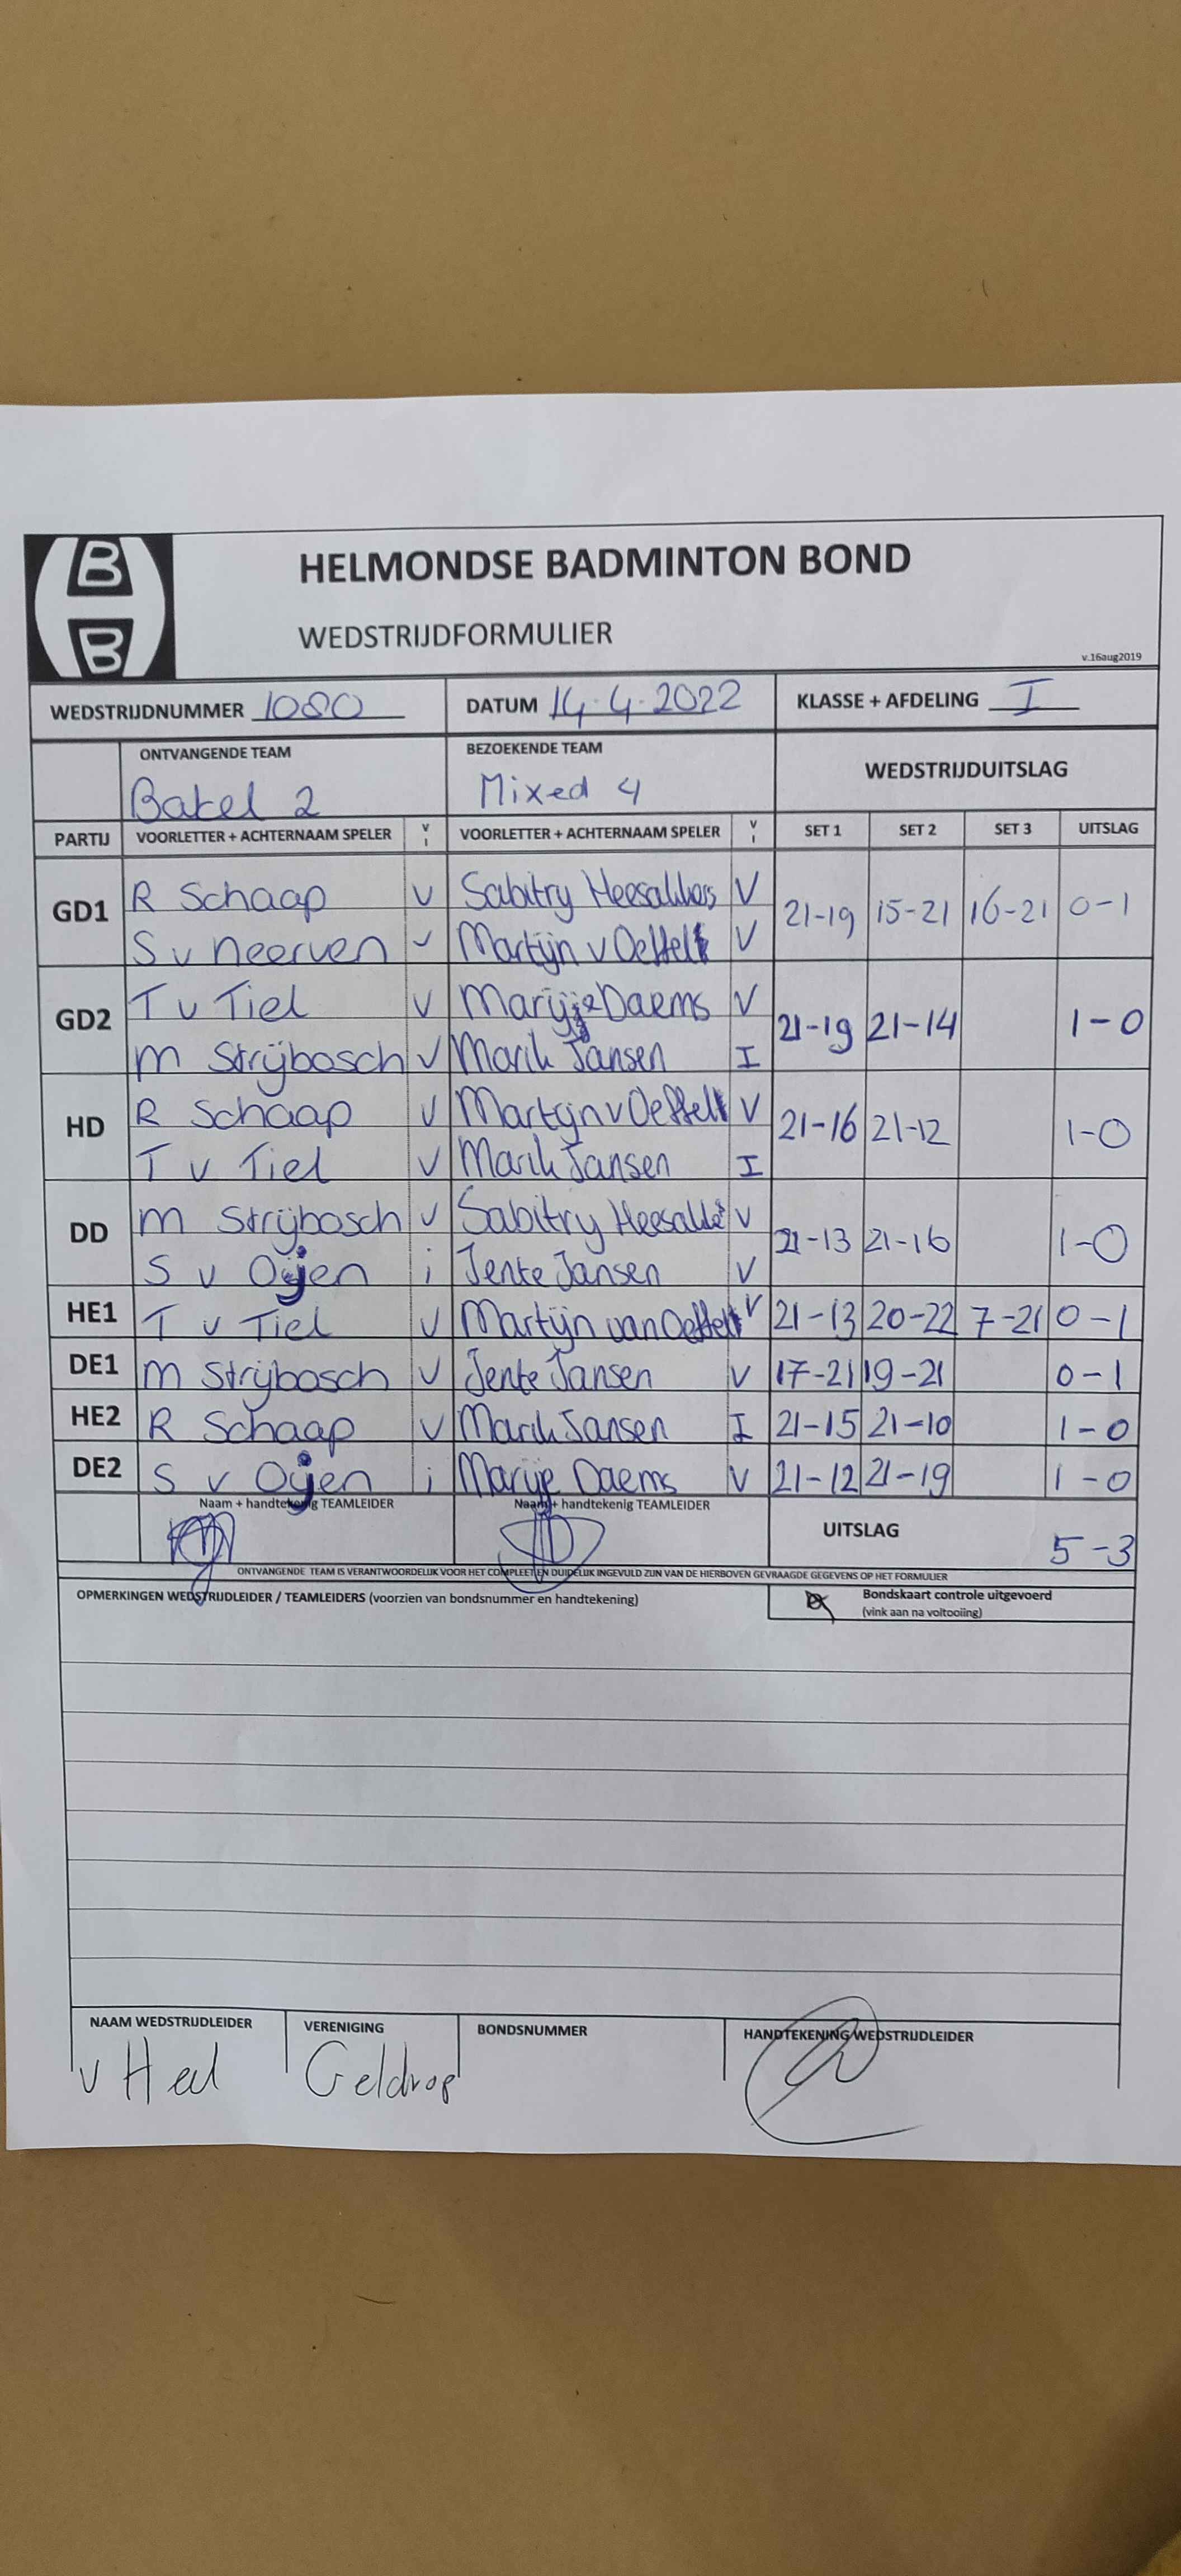 B
B
HELMONDSE BADMINTON BOND
WEDSTRIJDFORMULIER
v.16aug2019
WEDSTRIJDNUMMER 1080 DATUM 14-4-2022 KLASSE + AFDELING I
ONTVANGENDE TEAM BEZOEKENDE TEAM WEDSTRIJDUITSLAG
Bakel 2 Mixed 4
PARTIJ VOORLETTER + ACHTERNAAM SPELER V I VOORLETTER + ACHTERNAAM SPELER V I SET 1 SET 2 SET 3 UITSLAG
GD1 R Schaap V Sabitry Heesakkers V 21-19 15-21 16-21 0-1
S v Neerven V Martijn v Oeffelt V
GD2 T v Tiel V Marijje Daems V 21-19 21-14 1-0
M Strijbosch V Marik Jansen I
HD R Schaap V Martijn v Oeffelt V 21-16 21-12 1-0
T v Tiel V Marik Jansen I
DD M Strijbosch V Sabitry V 21-13 21-16 1-0
S v Oijen i Jente Jansen V
HE1 T v Tiel V Martijn van Oeffelt V 21-13 20-22 7-21 0-1
DE1 M Strijbosch V Jente Jansen V 17-21 19-21 0-1
HE2 R Schaap V Marik Jansen I 21-15 21-10 1-0
DE2 S v Oijen i Marije Daems V 21-12 21-19 1-0
Naam + handtekenig TEAMLEIDER Naam + handtekenig TEAMLEIDER UITSLAG 5-3
ONTVANGENDE TEAM IS VERANTWOORDELIJK VOOR HET COMPLEET EN DUIDELIJK INGEVULD ZIJN VAN DE HIERBOVEN GEVRAAGDE GEGEVENS OP HET FORMULIER
OPMERKINGEN WEDSTRIJDLEIDER / TEAMLEIDERS (voorzien van bondsnummer en handtekening) Bondskaart controle uitgevoerd
(vink aan na voltooiing)
NAAM WEDSTRIJDLEIDER VERENIGING BONDSNUMMER HANDTEKENING WEDSTRIJDLEIDER
v Heel Geldrop